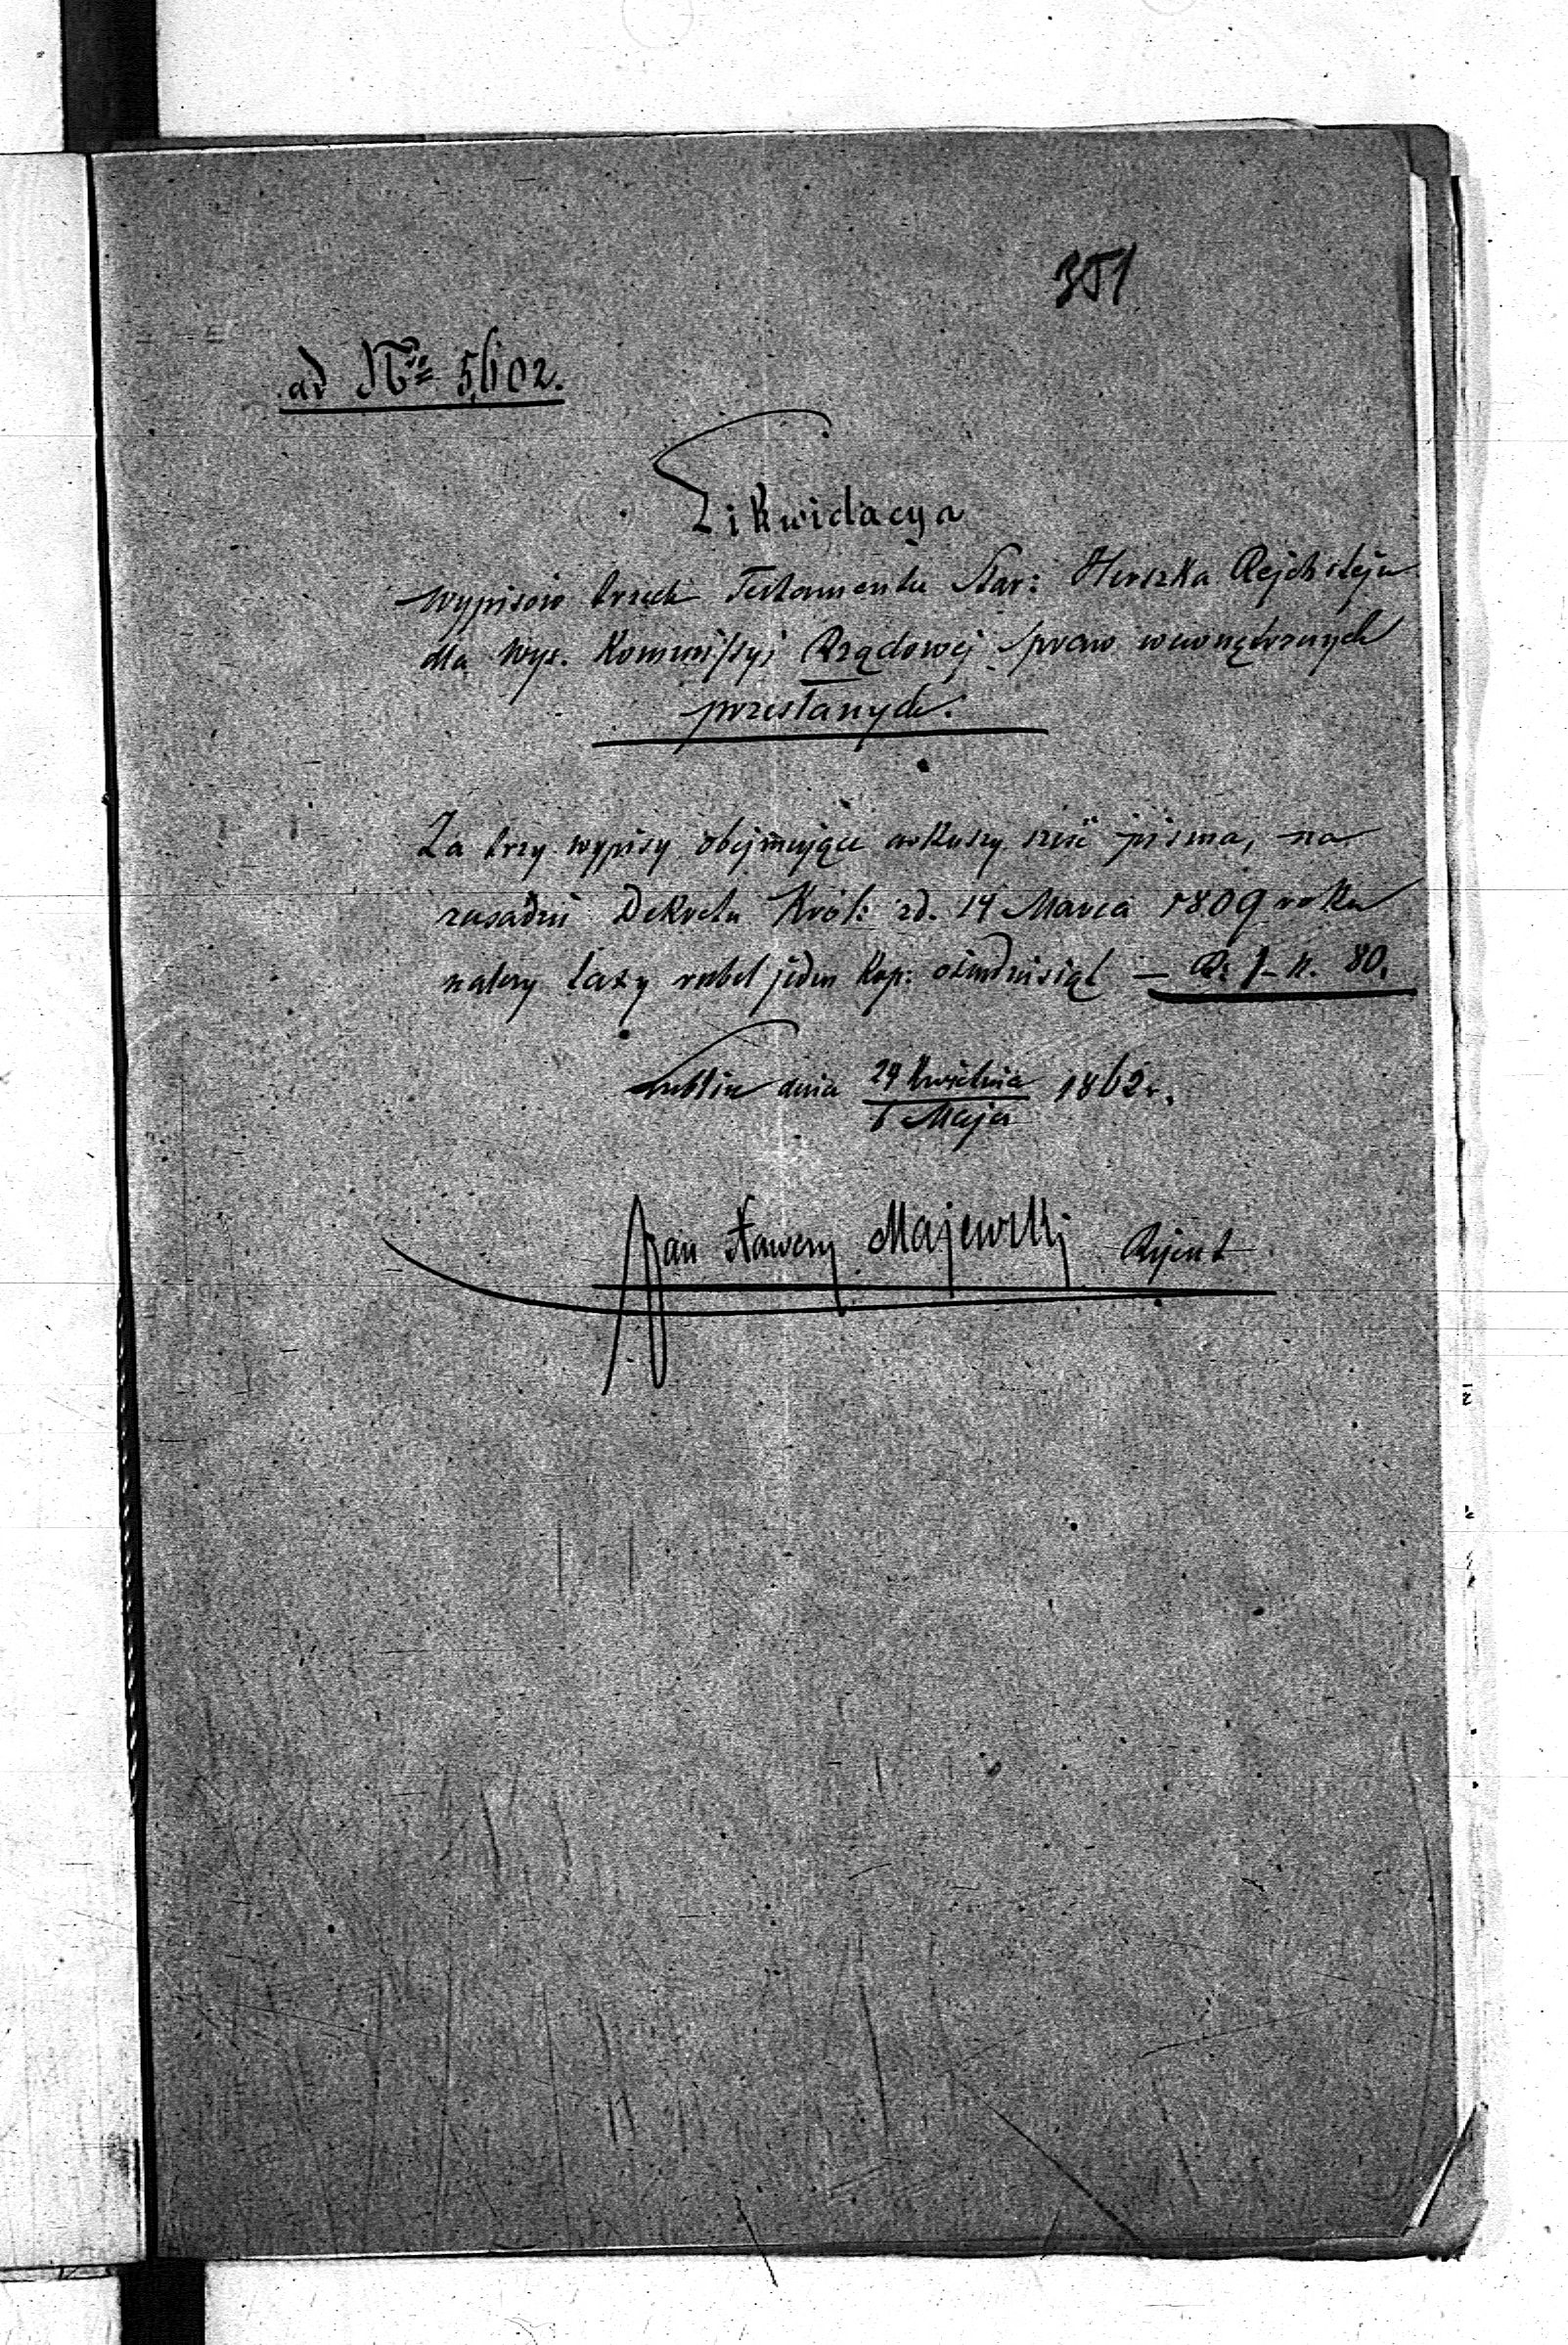 351
ad Nro 5602.
Likwidacya
Wypisów trzech Testamentu Star: Herszka Rejchsteju
dla Wys. Kommissyi Rządowej spraw wewnętrznych
przesłanych.
Za trzy wypisy obejmujące arkuszy sześć pisma, na
zasadzie Dekretu Król: zd. 14 Marca 1809 roku
należy taxy rubel jeden kop: ośmdziesiąt — R: 1 - k. 80.
Lublin dnia 24 Kwietnia 1862 r.
6 Maja
Jan Xawery Majewski Rejent